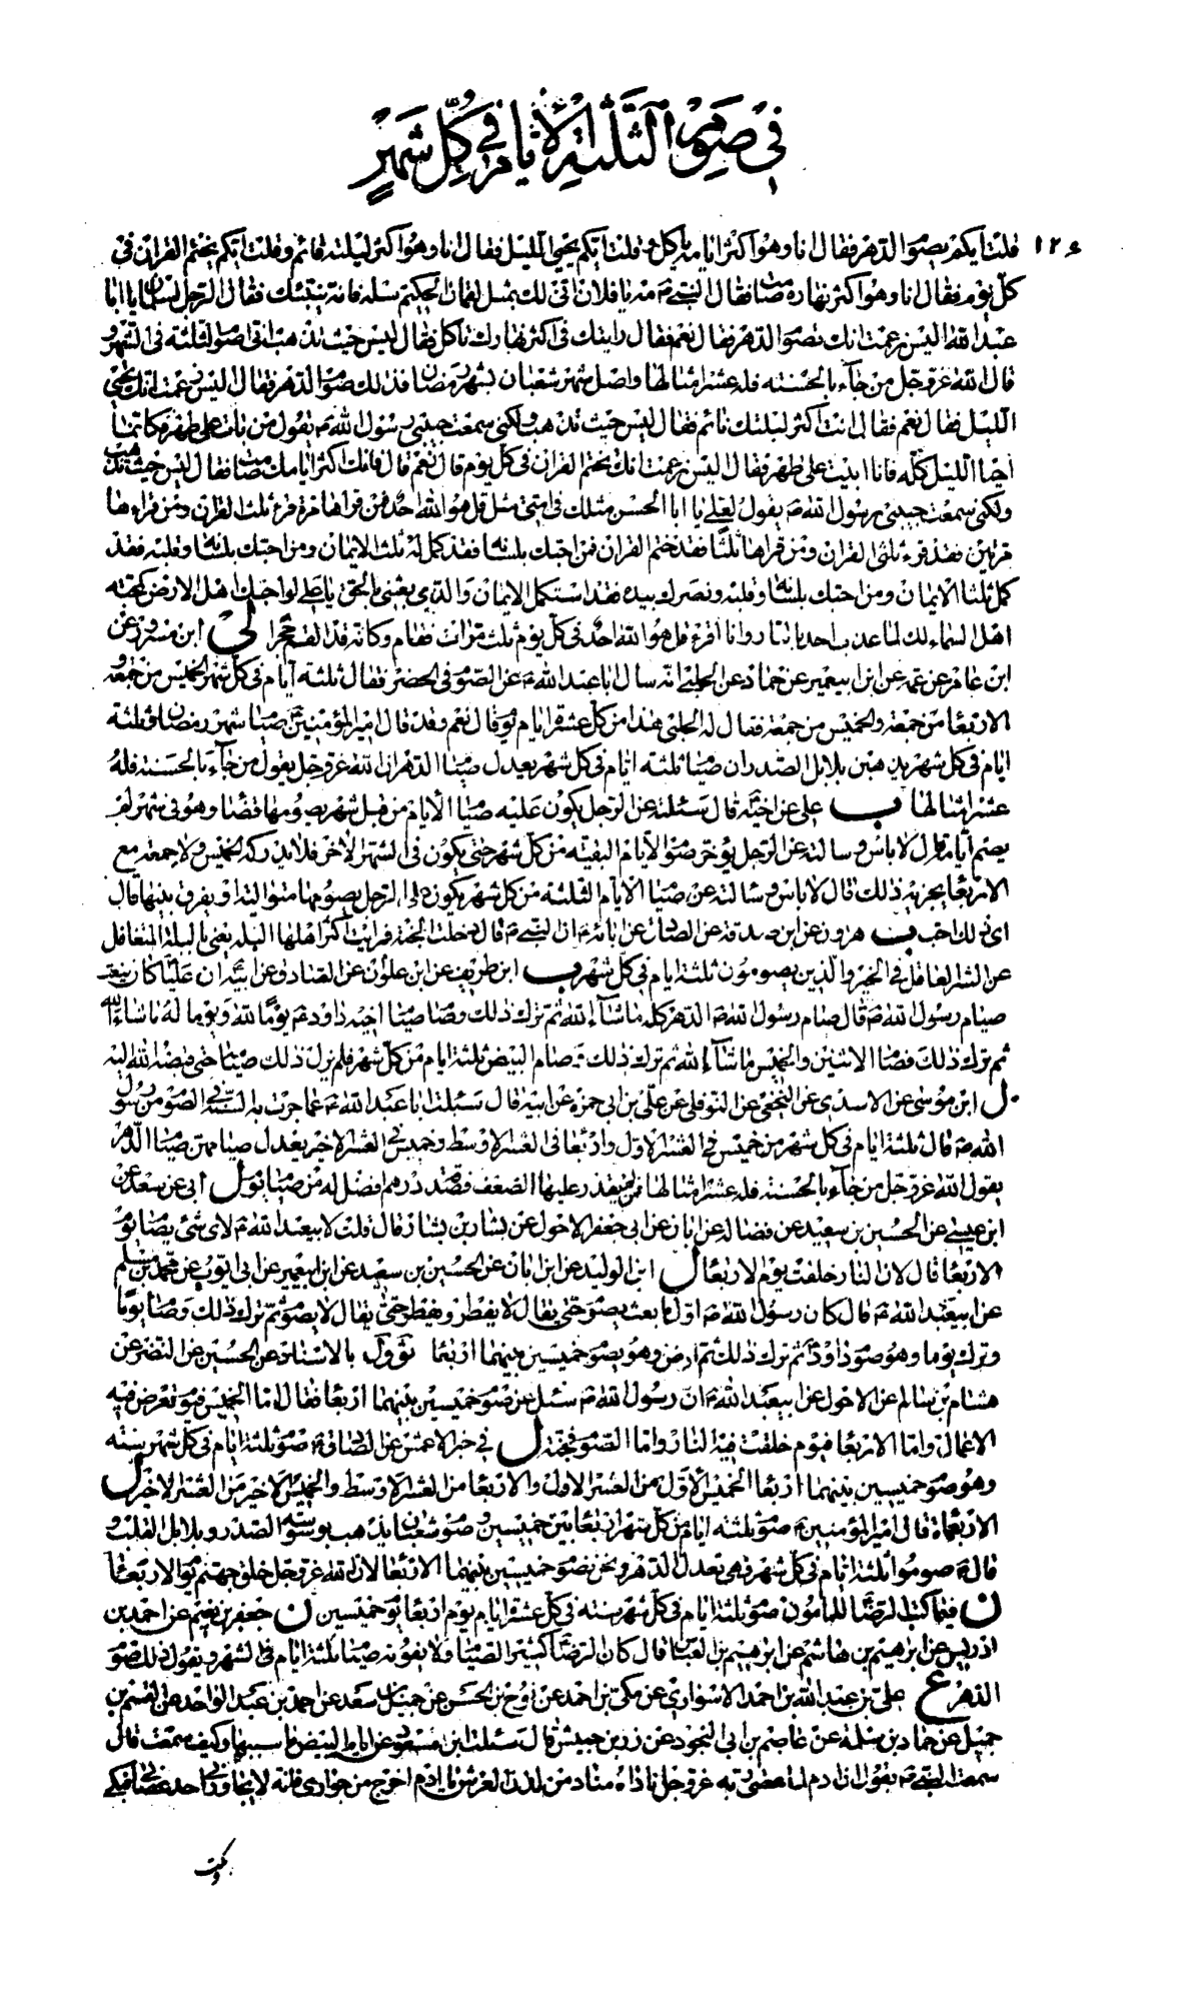 في صوم الثلثة الأيام في كل شهر
١٢٤
قلت ايكم يصوم الدهر فقال انا وهو اكثر ايامه ياكل وقلت ايكم يحيى الليل فقال انا وهو اكثر ليلته نائم وقلت ايكم يختم القران في
كل يوم فقال انا وهو اكثر نهاره صامت فقال النبي ص مه يا فلان انى لك بمثل لقمان الحكيم سله فانه ينبئك فقال الرجل لسلمان يا ابا
عبد الله اليس زعمت انك تصوم الدهر فقال نعم فقال رايتك في اكثر نهارك تاكل فقال ليس حيث تذهب انى اصوم الثلثة في الشهر و
قال الله عز وجل من جاء بالحسنة فله عشر امثالها واصل شهر شعبان بشهر رمضان فذلك صوم الدهر فقال اليس زعمت انك تحيى
الليل فقال نعم فقال انت اكثر ليلتك نائم فقال ليس حيث تذهب ولكنى سمعت حبيبى رسول الله ص يقول من بات على طهر فكانما
احيا الليل كله فانا ابيت على طهر فقال اليس زعمت انك تختم القران في كل يوم قال نعم قال فانك اكثر ايامك صامت فقال ليس حيث تذهب
ولكنى سمعت حبيبى رسول الله ص يقول لعلى يا ابا الحسن مثلك في امتى مثل قل هو الله احد فمن قراها مرة قرء ثلث القران ومن قراها
مرتين فقد قرء ثلثى القران ومن قراها ثلثا فقد ختم القران فمن احبك بلسانه فقد كمل له ثلث الايمان ومن احبك بلسانه وقلبه فقد
كمل ثلثا الايمان ومن احبك بلسانه وقلبه ونصرك بيده فقد استكمل الايمان والذى بعثنى بالحق يا على لو احبك اهل الارض كمحبة
اهل السماء لك لما عذب احد بالنار وانا اقرء قل هو الله احد في كل يوم ثلث مرات فقام وكانه قد القم حجرا لى ابن مسرور عن
ابن عامر عن عمه عن ابن ابيعمير عن حماد عن الحلبى انه سال ابا عبد الله ع عن الصوم في الحضر فقال ثلثة ايام في كل شهر الخميس من جمعة و
الاربعاء من جمعة والخميس من جمعة فقال له الحلبى هذا من كل عشرة ايام يوم قال نعم وقد قال امير المؤمنين ع صيام شهر رمضان وثلثة
ايام في كل شهر يذهبن بلابل الصدر ان صيام ثلثة ايام في كل شهر يعدل صيام الدهر ان الله عز وجل يقول من جاء بالحسنة فله
عشر امثالها ب على عن اخيه قال سئلته عن الرجل يكون عليه صيام الأيام من قبل شهر يصومها قضاء وهو في شهر لم
يصم ايامه قال لا باس وسالته عن الرجل يؤخر صوم الايام البقية من كل شهر حتى يكون في الشهر الاخر فلا يدركه الخميس ولا جمعة مع
الاربعاء يجزيه ذلك قال لا باس وسالته عن صيام الايام الثلثة من كل شهر يكون على الرجل يصومها متوالية او يفرق بينها قال
اى ذلك احب ب هرون عن ابن صدقة عن الصادق عن ابائه ع ان النبي ص قال دخلت الجنة فرايت اكثر اهلها البله يعنى بالبله المتغافل
عن الشر العاقل في الخير والذين يصومون ثلثة ايام في كل شهر ب ابن طريف عن ابن علوان عن الصادق عن ابيه ان عليا كان ينعت
صيام رسول الله ص قال صام رسول الله ص الدهر كله ما شاء الله ثم ترك ذلك وصام صيام اخيه داود ع يوما لله ويوما له ما شاء الله
ثم ترك ذلك فصام الاثنين والخميس ما شاء الله ثم ترك ذلك وصام البيض ثلثة ايام من كل شهر فلم يزل ذلك صيامه حتى قبضه الله اليه
ل ابن موسى عن الاسدى عن النخعى عن النوفلى عن على بن ابى حمزه عن ابيه قال سئلت ابا عبد الله ع عما جرت به السنة في الصوم من رسول
الله ص قال ثلثة ايام في كل شهر من خميس في العشر الاول واربعاء في العشر الاوسط وخميس في العشر الاخير يعدل صيامهن صيام الدهر
يقول الله عز وجل من جاء بالحسنة فله عشر امثالها فمن لم يقدر عليها لضعف فصدقة درهم افضل له من صيام يوم ل ابى عن سعد عن
ابن عيسى عن الحسين بن سعيد عن فضالة عن ابان عن ابى جعفر الاحول عن بشار بن بشار قال قلت لابيعبد الله ع لاى شئ يصام يوم
الاربعاء قال لان النار خلقت يوم الاربعاء ل ابن الوليد عن ابن ابان عن الحسين بن سعيد عن ابن ابيعمير عن ابى ايوب عن محمد بن مسلم
عن ابيعبد الله ع قال كان رسول الله ص اول ما بعث يصوم حتى يقال لا يفطر ويفطر حتى يقال لا يصوم ثم ترك ذلك وصام يوما
وترك يوما وهو صوم داود ع ثم ترك ذلك ثم قبض وهو يصوم خميسين بينهما اربعاء بالاسناد عن الحسين عن النضر عن
هشام بن سالم عن الاحول عن ابيعبد الله ع ان رسول الله ص سئل عن صوم خميسين بينهما اربعاء فقال اما الخميس فيوم تعرض فيه
الاعمال واما الاربعاء فيوم خلقت فيه النار واما الصوم فجنة ل في خبر الاعمش عن الصادق ع صوم ثلثة ايام في كل شهر سنة
وهو صوم خميسين بينهما اربعاء الخميس الأول من العشر الاول والاربعاء من العشر الاوسط والخميس الاخير من العشر الاخير ل
الاربعمائة قال امير المؤمنين ع صوم ثلثة ايام من كل شهر اربعاء بين خميسين وصوم شعبان يذهب بوسوسة الصدر وبلابل القلب و
قال ع صوموا ثلثة ايام في كل شهر فهى تعدل الدهر ونحن نصوم خميسين بينهما الاربعاء لان الله عز وجل خلق جهنم يوم الاربعاء
ن فيما كتب الرضا ع للمأمون صوم ثلثة ايام في كل شهر سنة في كل عشرة ايام يوم اربعاء بين خميسين ن جعفر بن نعيم عن احمد بن
ادريس عن ابرهيم بن هاشم عن ابرهيم بن العباس قال كان الرضا ع كثير الصيام ولا يفوته صيام ثلثة ايام في الشهر ويقول ذلك صوم
الدهر ع على بن عبد الله بن احمد الاسوارى عن مكى بن احمد عن نوح بن الحسن عن جميل بن سعد عن احمد بن عبد الواحد عن القسم بن
جميل عن حماد بن سلمة عن عاصم بن ابى النجود عن زر بن حبيش قال سئلت ابن مسعود عن ايام البيض ما سببها وكيف سمعت قال
سمعت النبي ص يقول ان ادم لما عصى ربه عز وجل ناداه مناد من لدن العرش يا ادم اخرج من جوارى فانه لا يجاورنى احد عصانى فبكى
وبكت